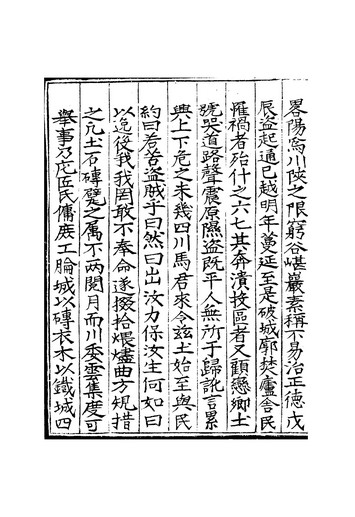 畧陽爲川陜之限窮谷嵁巖素稱不易治正德戊
辰盗起通巴越明年蔓延至是破城郭焚廬舍民
罹禍者殆什之六七其奔潰接區者又顧戀鄉土
號哭道路聲震原隰盗既平人無所于歸訛言累
興上下危之未幾四川馬君來令兹土始至與民
約曰若苦盗賊乎曰然曰出汝力保汝生何如曰
以逸後我我罔敢不奉命遂掇拾煨燼曲方規措
之凡土石磚甓之属不两閲月而川委雲集度可
舉事乃庀匠民傭度工腀城以磚衣木以鐵城四